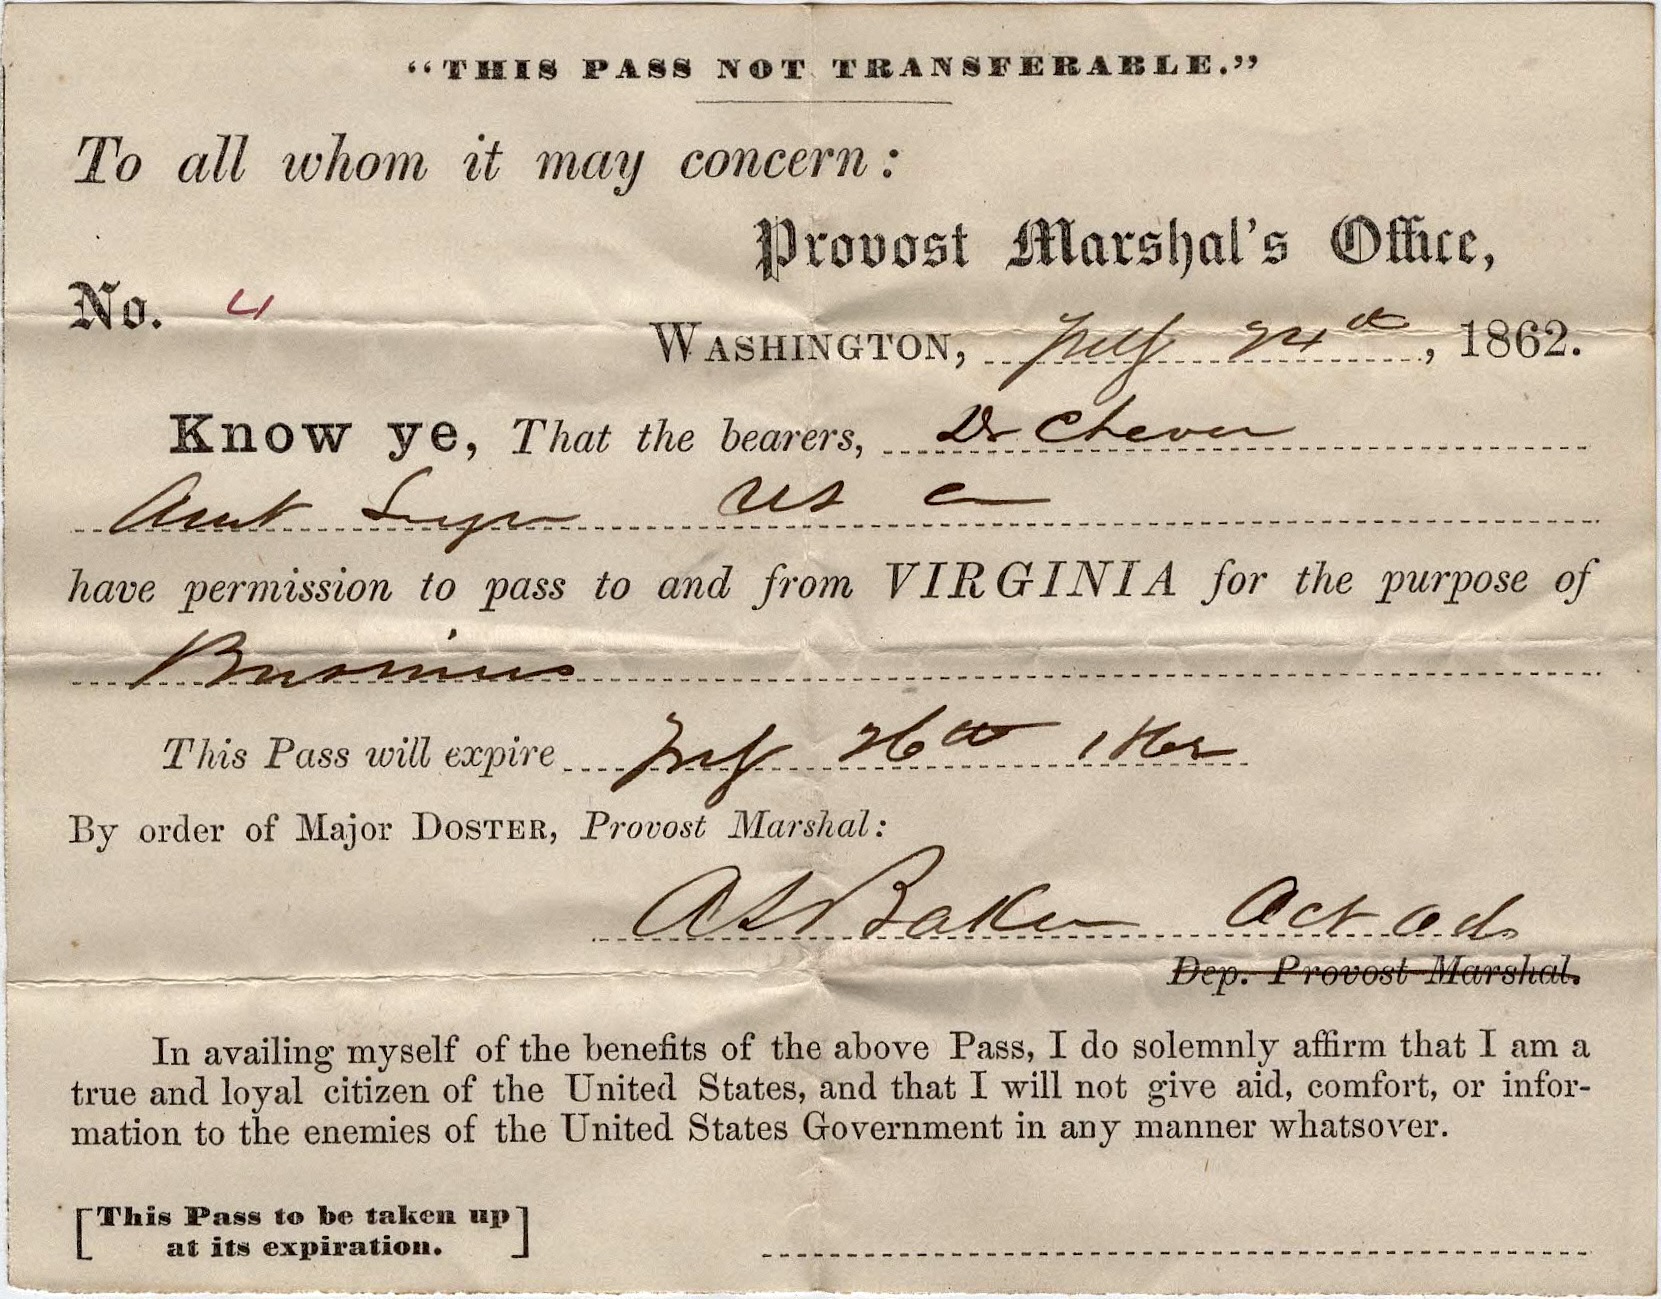 "THIS PASS NOT TRANSFERABLE."
To all whom it may concern:
Provost Marshal's Office,
No. 4
WASHINGTON, July 24th, 1862.
Know ye, That the bearers, Dr Chever
Asst Surgn US
have permission to pass to and from VIRGINIA for the purpose of
Business
This Pass will expire July 26th 1862
By order of Major DOSTER, Provost Marshal:
Baker Act Ad.
Dep. Provost Marshal.
In availing myself of the benefits of the above Pass, I do solemnly affirm that I am a
true and loyal citizen of the United States, and that I will not give aid, comfort, or infor-
mation to the enemies of the United States Government in any manner whatsover.
[This Pass to be taken up
at its expiration.]